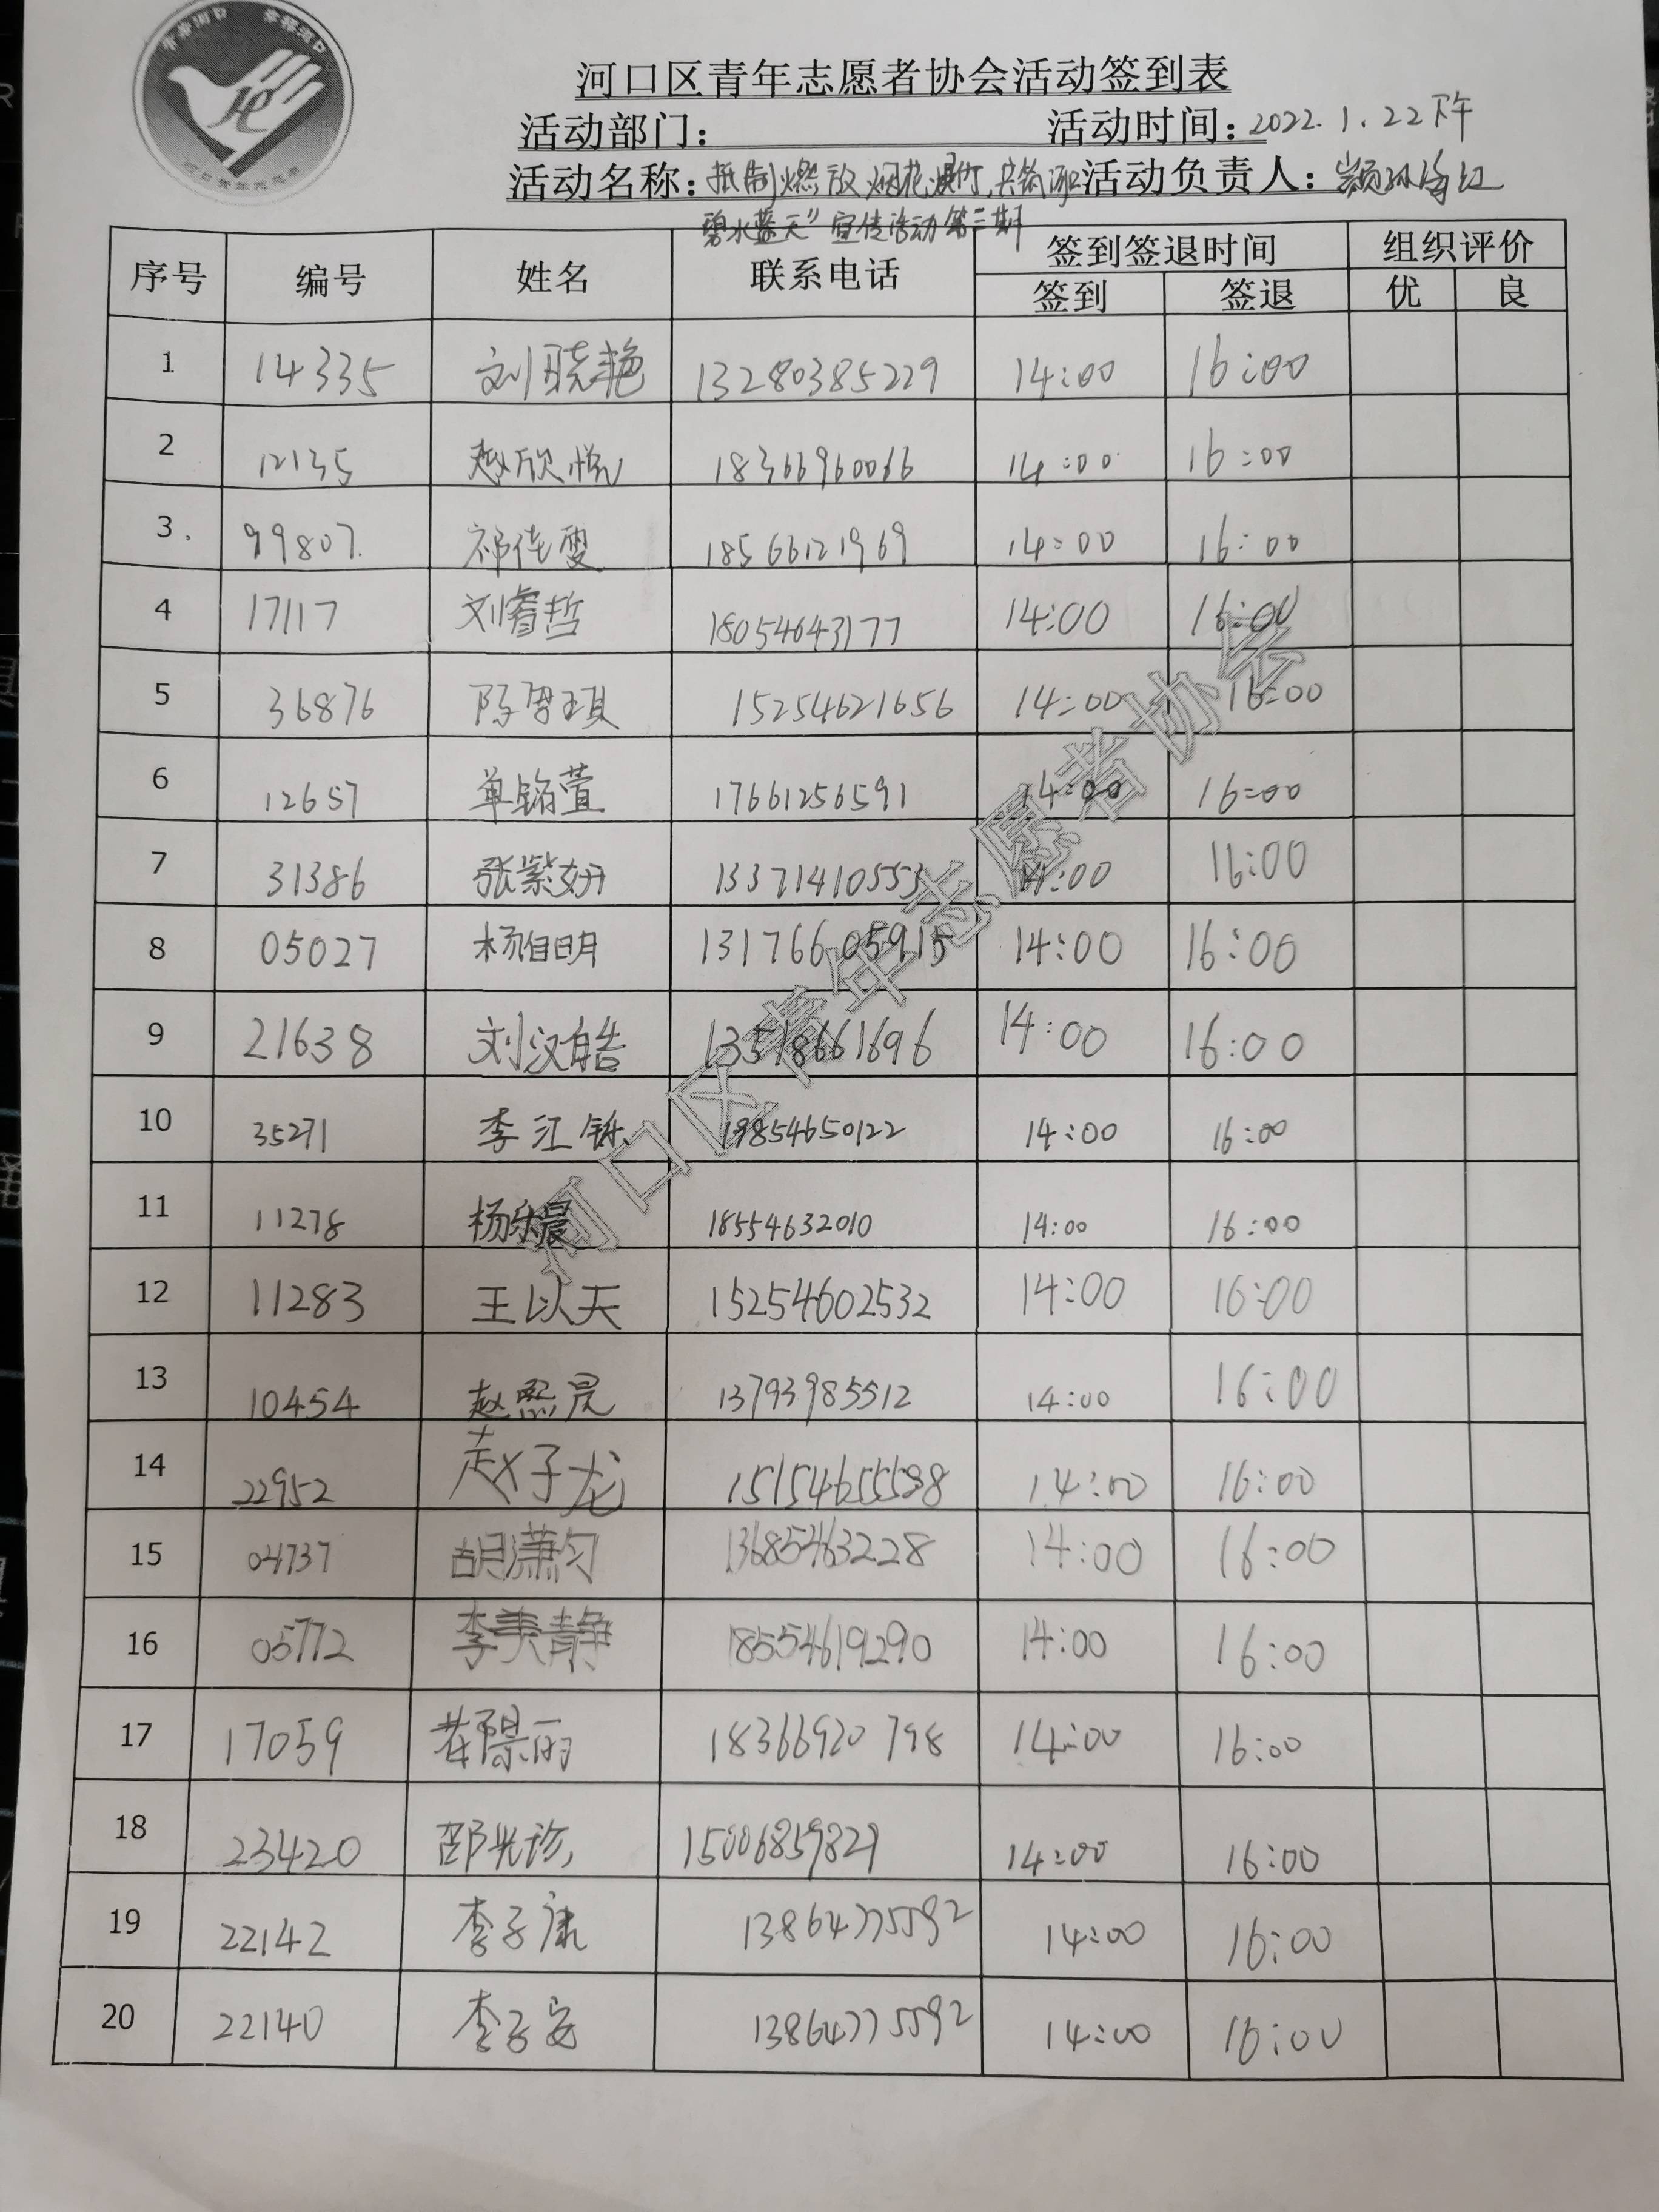 河口区青年志愿者协会活动签到表
活动部门： 活动时间：2022.1.22下午
活动名称：抵制燃放烟花爆竹,共 活动负责人：
碧水蓝天”宣传活动第三期
序号 编号 姓名 联系电话 签到签退时间 组织评价
签到 签退 优 良
1 14335 刘晓艳 13280385229 14:00 16:00
2 12135 赵欣悦 18366960066 14:00 16:00
3 99807 祁佳雯 18566121969 14:00 16:00
4 17117 刘睿哲 18054643177 14:00 16:00
5 36876 陈思琪 15254621656 14:00 16:00
6 12657 单铭萱 17661256591 14:00 16:00
7 31386 张紫妍 13371410553 14:00 16:00
8 05027 杨自明 13176605915 14:00 16:00
9 21638 刘汉皓 13518661696 14:00 16:00
10 35271 李江 19854650122 14:00 16:00
11 11278 杨乐晨 18554632010 14:00 16:00
12 11283 王以天 15254602532 14:00 16:00
13 10454 赵熙晨 13793985512 14:00 16:00
14 22952 赵子龙 14:00 16:00
15 04737 胡潇匀 13685463228 14:00 16:00
16 05772 李美静 18554619290 14:00 16:00
17 17059 18366920798 14:00 16:00
18 23420 邵光珍 15006859829 14:00 16:00
19 22142 李子康 13864775592 14:00 16:00
20 22140 李子安 13864775592 14:00 16:00
河口区青年志愿者协会